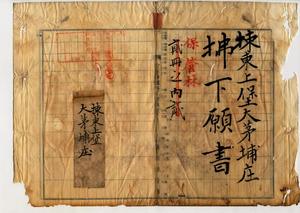 揀東上堡大茅埔庄
拂下願書
保管林
貳冊之內貳
揀東上堡
大茅埔庄